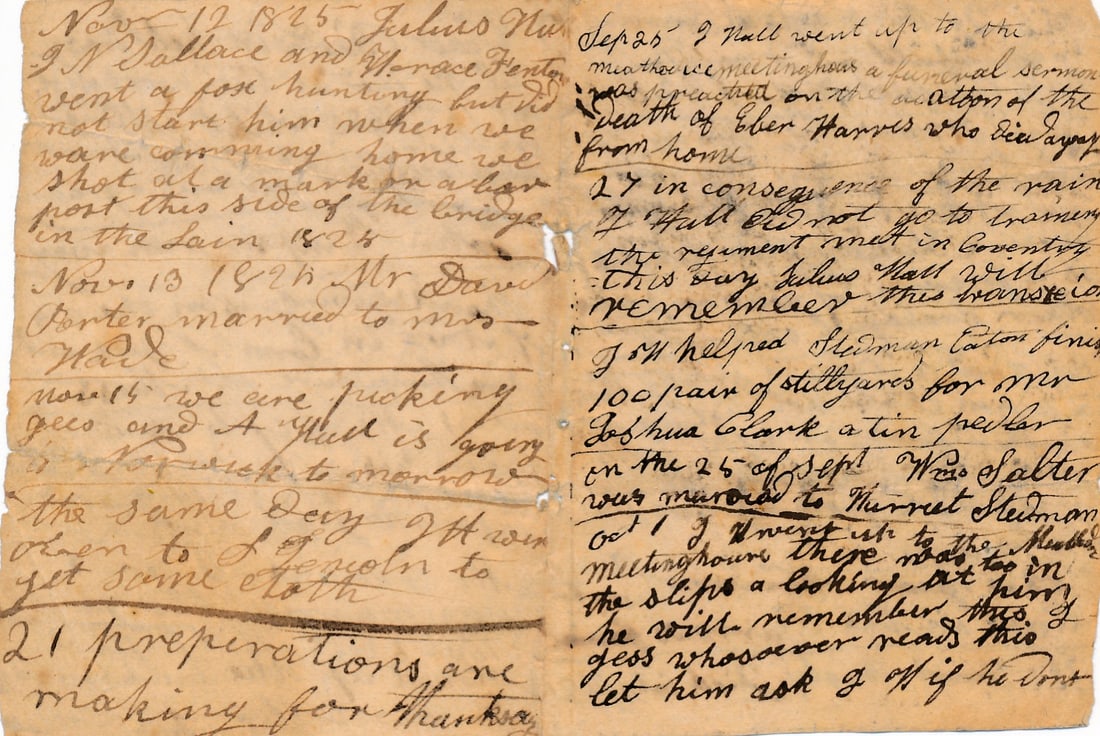 Nov 12 1825 Julius Hu
J N Sallace and Horace Fenton
went a fox hunting but did
not start him when we
ware comming home we
shot at a mark on a bar
post this side of the bridge
in the Lain 1825
Nov. 13 182 Mr David
Porter married to mrs
Wade
nov 15 we are picking
gees and A Hull is going
to Norwich to morrow
the same day J H wen
over to Lincoln to
get some cloth
21 preperations are
making for Thanksg
Sep 25 J Hull went up to the
meetinghous a funeral sermon
was preached on the of the
death of Eber Harris who died away
from home
27 in consequence of the rain
J Hull did not go to training
the regiment met in Coventry
this day Julius Hull will
remember this
J H helped Stedman Eaton finis
100 pair of stillyards for mr
Joshua Clark a tin pedler
on the 25 of sept Wm Salter
was married to Harriet Stedman
oct 1 J H went up to the
meetinghouse there was too in
the slips a looking at him
he will remember this I
gess whosoever reads this
let him ask J H if he dont